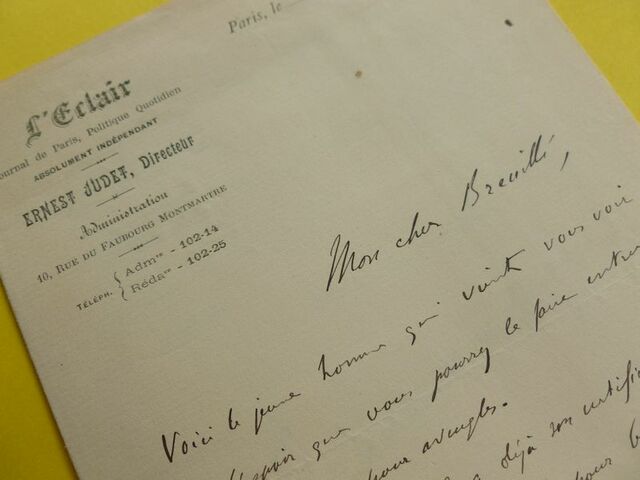 Paris, le
L'Eclair
Journal de Paris, Politique Quotidien
ABSOLUMENT INDÉPENDANT
ERNEST JUDET, Directeur
Administration
10, RUE DU FAUBOURG MONTMARTRE
TÉLÉPH. { Admon - 102-14
{ Rédaon - 102-25
Mon cher
Voici le jeune homme qui vient vous voir
espoir que vous pourrez le faire entrer
pour aveugles.
déjà son certific
pour